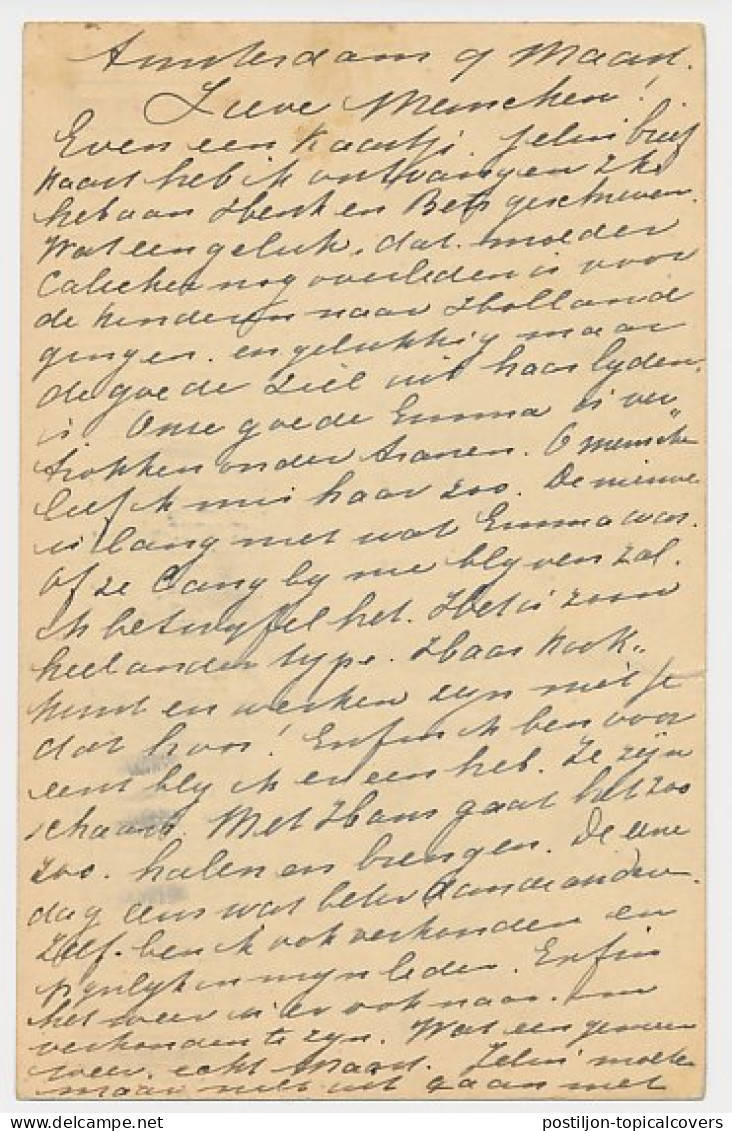 Amsterdam 9 Maart.
Lieve Menschen!
Even een kaartje. Jelui brief
kaart heb ik ontvangen. Ik
heb aan en Bets geschreven.
Wat een geluk, dat moeder
nog overleden is voor
de kinderen naar Holland
gingen. en gelukkig maar
de goede ziel uit haar lyden
is. Onze goede Emma is ver
trokken onder tranen. O mensche
lief ik mis haar zoo. De nieuwe
is lang niet wat Emma was.
Of ze lang by me blyven zal.
ik betwyfel het. Het is zoon
heel ander type. Haar kook-
kunst en werken zyn niet je
dat hoor! Enfin ik ben voor
eerst bly ik er een heb. Ze zyn
schaars. Met Hans gaat het zoo
zoo. halen en brengen. De eene
dag eens wat beter dan de andere.
Zelf ben ik ook verkouden en
pynlyk in myn leden. Enfin
het weer is er ook naar. om
verkouden te zyn. Wat een gemeen
weer. echt Maart. Jelui moeten
maar niet uit gaan met
delcampe.net
postiljon-topicalcovers